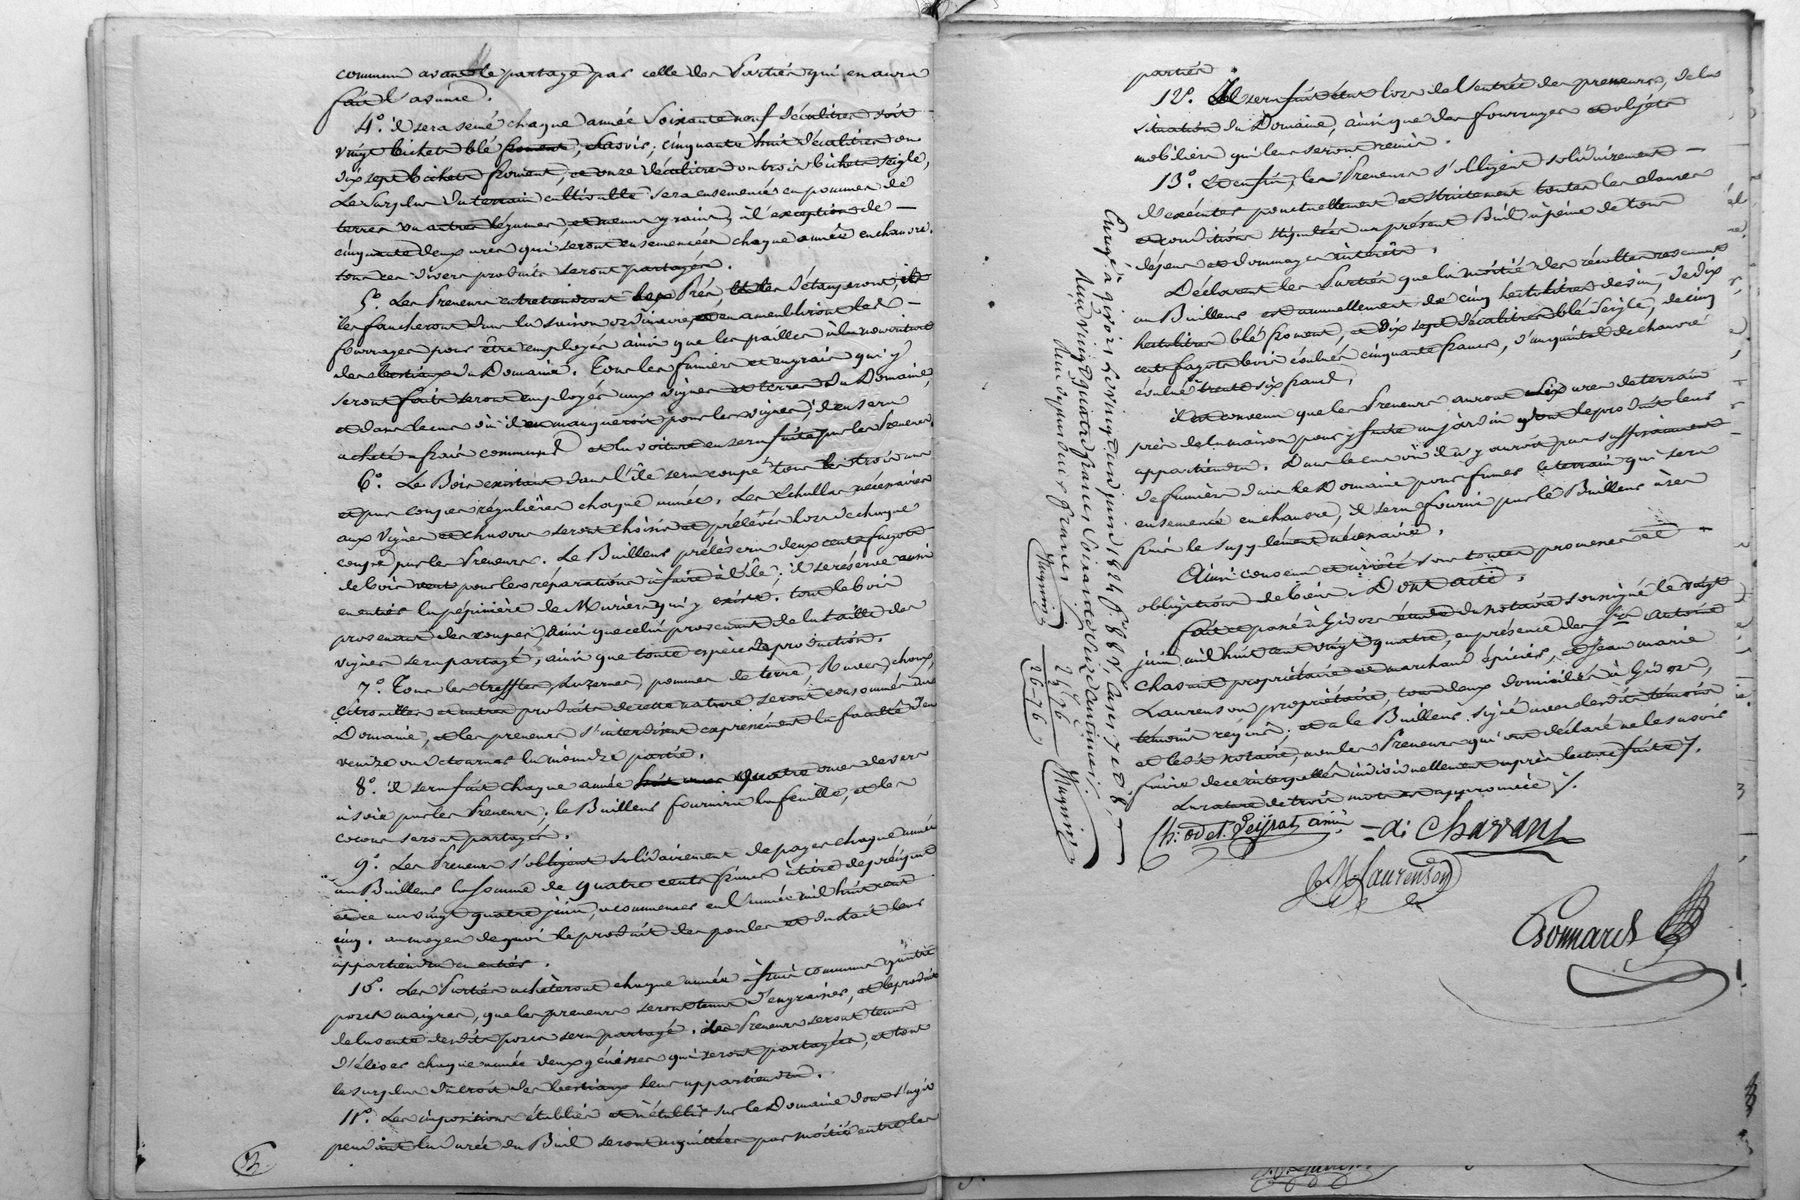 commun avant le partage par celle des Parties qui en aura
fait l'avance.
4º. il sera semé chaque année Soixante neuf décalitres soit
vingt bichets blé froment, Savoir; cinquante huit décalitres ou
dix sept bichets froment, et onze décalitres ou trois bichets seigle,
Le Surplus du terrain cultivable sera ensemencé en pommes de
terres ou autres légumes, et menus grains, à l'exception de —
cinquante deux ares qui seront ensemencées chaque année en chanvre.
tous ces divers produits seront partagés.
5º. Les Preneurs entretiendront les Prés, et les étangeront, et
les faucheront dans la saison ordinaire, et en ameubliront les —
fourrages pour être employés ainsi que les pailles à la nourriture
des bestiaux du Domaine. Tous les fumiers et engrais qui y
seront faits seront employés aux vignes et terres du Domaine,
et dans le cas où il en manqueroit pour les vignes, il en sera
acheté à frais communs et la voiture en sera faite par les Preneurs,
6º. Le Bois existant dans l'île sera coupé tous les trois ans
et par coupes régulières chaque année. Les Echallas nécessaires
aux vignes et chavoux seront choisis et prélévés lors de chaque
coupe par les Preneurs. Le Bailleur prélèvera deux cents fagots
de bois vert pour les réparations à faire à l'île; il se réserve aussi
en entier la pépinière de Muriers qui y existe. tout le bois
provenant des coupes, ainsi que celui provenant de la taille des
vignes sera partagé, ainsi que toute espèce de production.
7º. Tous les treffles, Luzernes, pommes de terre, Raves, choux,
citrouilles et autres produits de cette nature seront consommés dans
Domaine, et les preneurs s'interdisent expressément la faculté d'en
vendre ou détourner la moindre partie.
8º. il sera fait chaque année quatre onces de vers
à soie par les Preneurs; le Bailleur fournira la feuille, et les
cocons seront partagés.
9º. Les Preneurs s'obligent solidairement de payer chaque année
au Bailleur la somme de quatre cents francs à titre de préciput
et ce au vingt quatre juin, à commencer en l'année mil huit cent
cinq. au moyen de quoi le produit des poules et du lait leur
appartiendra en entier.
10º. Les Parties achèteront chaque année à frais communs quatre
porcs maigres, que les preneurs seront tenus d'engraisser, et le produit
de la vente desdits porcs sera partagé. les Preneurs seront tenus
d'élever chaque année deux génisses qui seront partagées, et tout
le surplus du croît des bestiaux leur appartiendra.
11º. Les impositions établies et à établir sur le Domaine dont s'agit
pendant la durée du Bail seront acquittées par moitié entre les
parties.
12º. Il sera fait état lors de l'entrée des preneurs, de la
situation du Domaine, ainsi que des fourrages et objets
mobiliers qui leur seront remis.
13º. et enfin, les Preneurs s'obligent solidairement —
d'exécuter ponctuellement et strictement toutes les clauses
et conditions stipulées au présent Bail à peine de tous
dépens et dommages intérêts.
Déclarent les Parties que la moitié des récoltes revenant
au Bailleur est annuellement de cinq hectolitres de vin, de dix
hectolitres blé froment, et dix sept décalitres blé Seigle, de cinq
cent fagots bois évalués cinquante francs, d'un quintal de chanvre
évalué trente six francs.
il est convenu que les Preneurs auront six ares de terrain
près de la maison pour y faire un jardin dont le produit leur
appartiendra. Dans le cas où il n'y auroit pas suffisamment
de fumiers dans le Domaine pour fumer le terrain qui sera
ensemencé en chanvre, il sera fourni par le Bailleur à ses
frais le supplément nécessaire.
Ainsi convenu et arrêté sous toutes promesses et
obligations de biens. Dont acte.
fait et passé à Givors étude du notaire soussigné le vingt
juin mil huit cent vingt quatre, en présence des Srs. Antoine
Chavant propriétaire et marchand épicier, et Jean marie
Laurenson propriétaire, tous deux domiciliés à Givors,
témoins requis; et a le Bailleur signé avec lesdits témoins
et led. notaire, non les Preneurs qui ont déclaré ne le savoir
faire de ce interpellés individuellement après lecture faite /.
La rature de trois mots est approuvée /.
Ch: od et. Peyrat ainé
= a: Chavans
JM Laurenson
Bonnard
Enrgé. à givors Le vingt un juin 1824 fº 88 Vº Cases 7 et 8,
Reçu vingt quatre francs Soixante seize centimes.
24-76
26-76
Magnin
Magnin